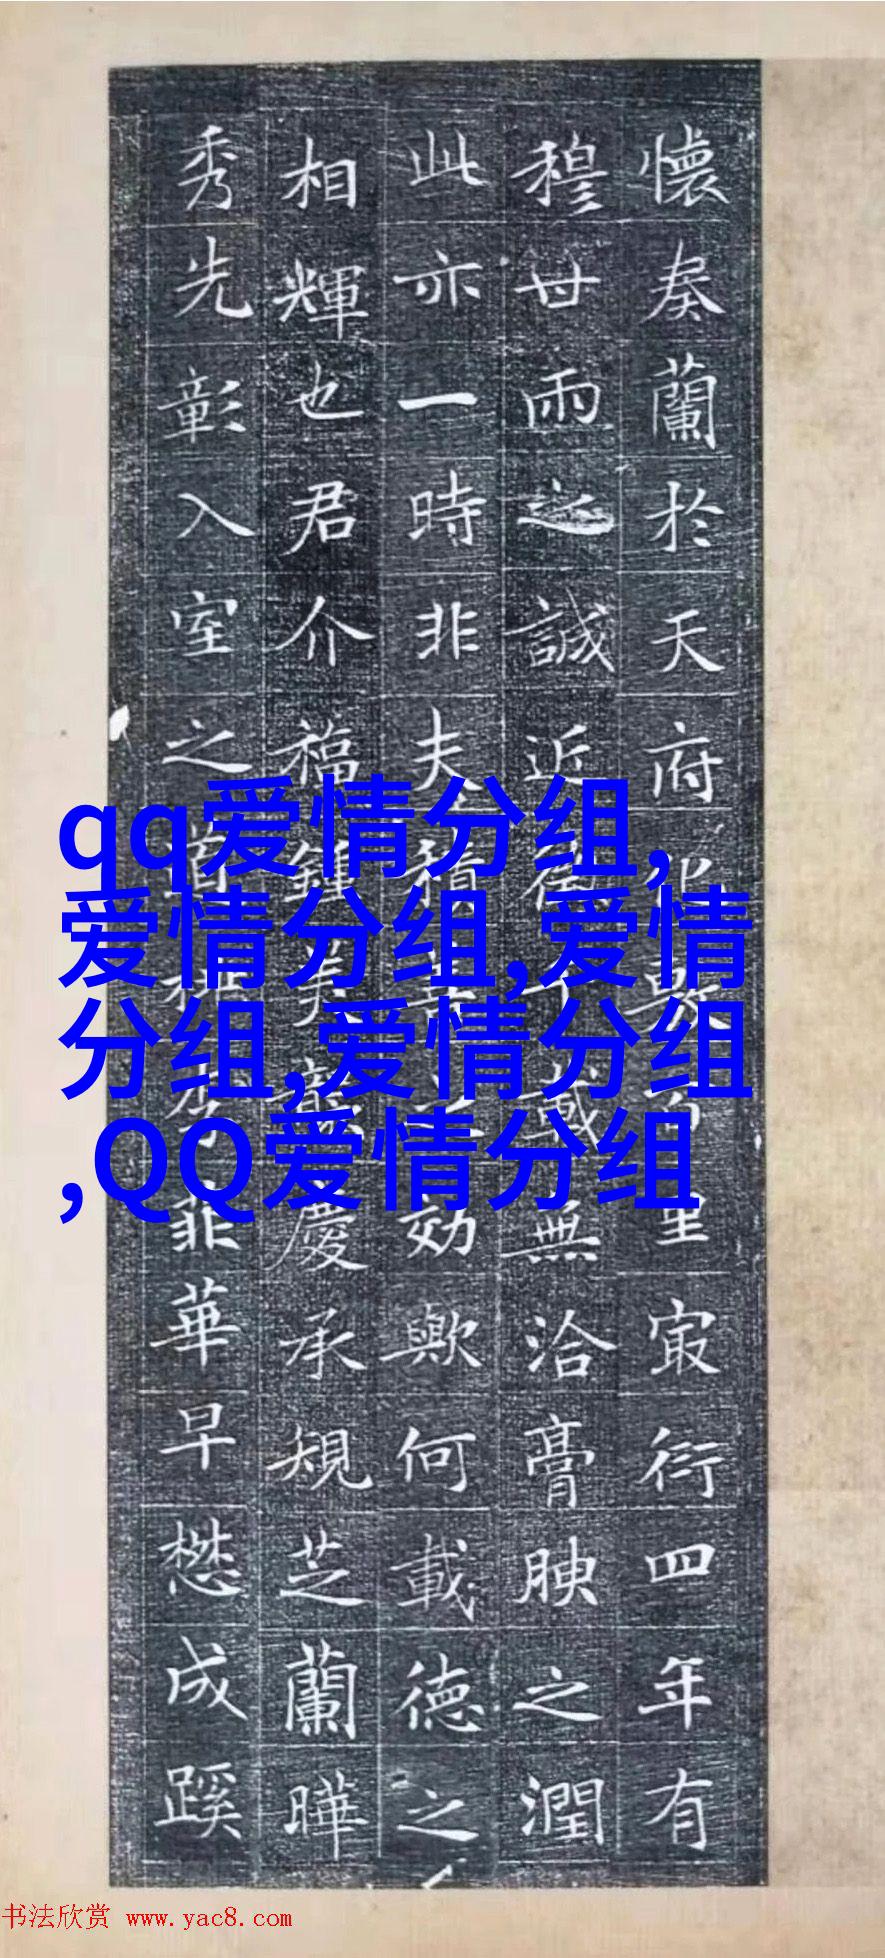 懷奏蘭於天府里冣衍四年有
穆世雨之誠近載無洽膏腴之潤
此亦一時非夫積善之効歟何載德之
相輝也君介福鍾美慶承規芝蘭曄
秀先彰入室之李菲華早懋成蹊
qq爱情分组,
爱情分组,爱情
分组,爱情分组
,QQ爱情分组
书法欣赏 www.yac8.com